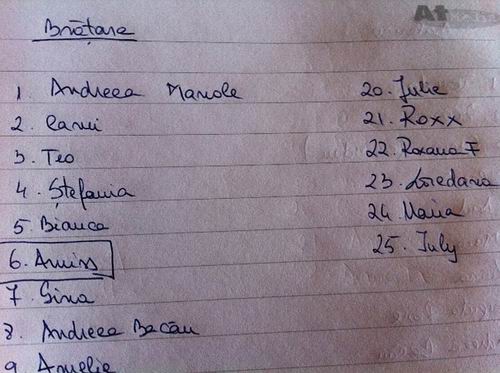 Brățara
1. Andreea Manole
2. Cami
3. Teo
4. Ștefania
5. Bianca
6. Amiss
7. Gina
8. Andreea Bacău
9 Amelie
20. Julie
21. Roxx
22. Roxana F
23. Loredana
24 Maria
25. July